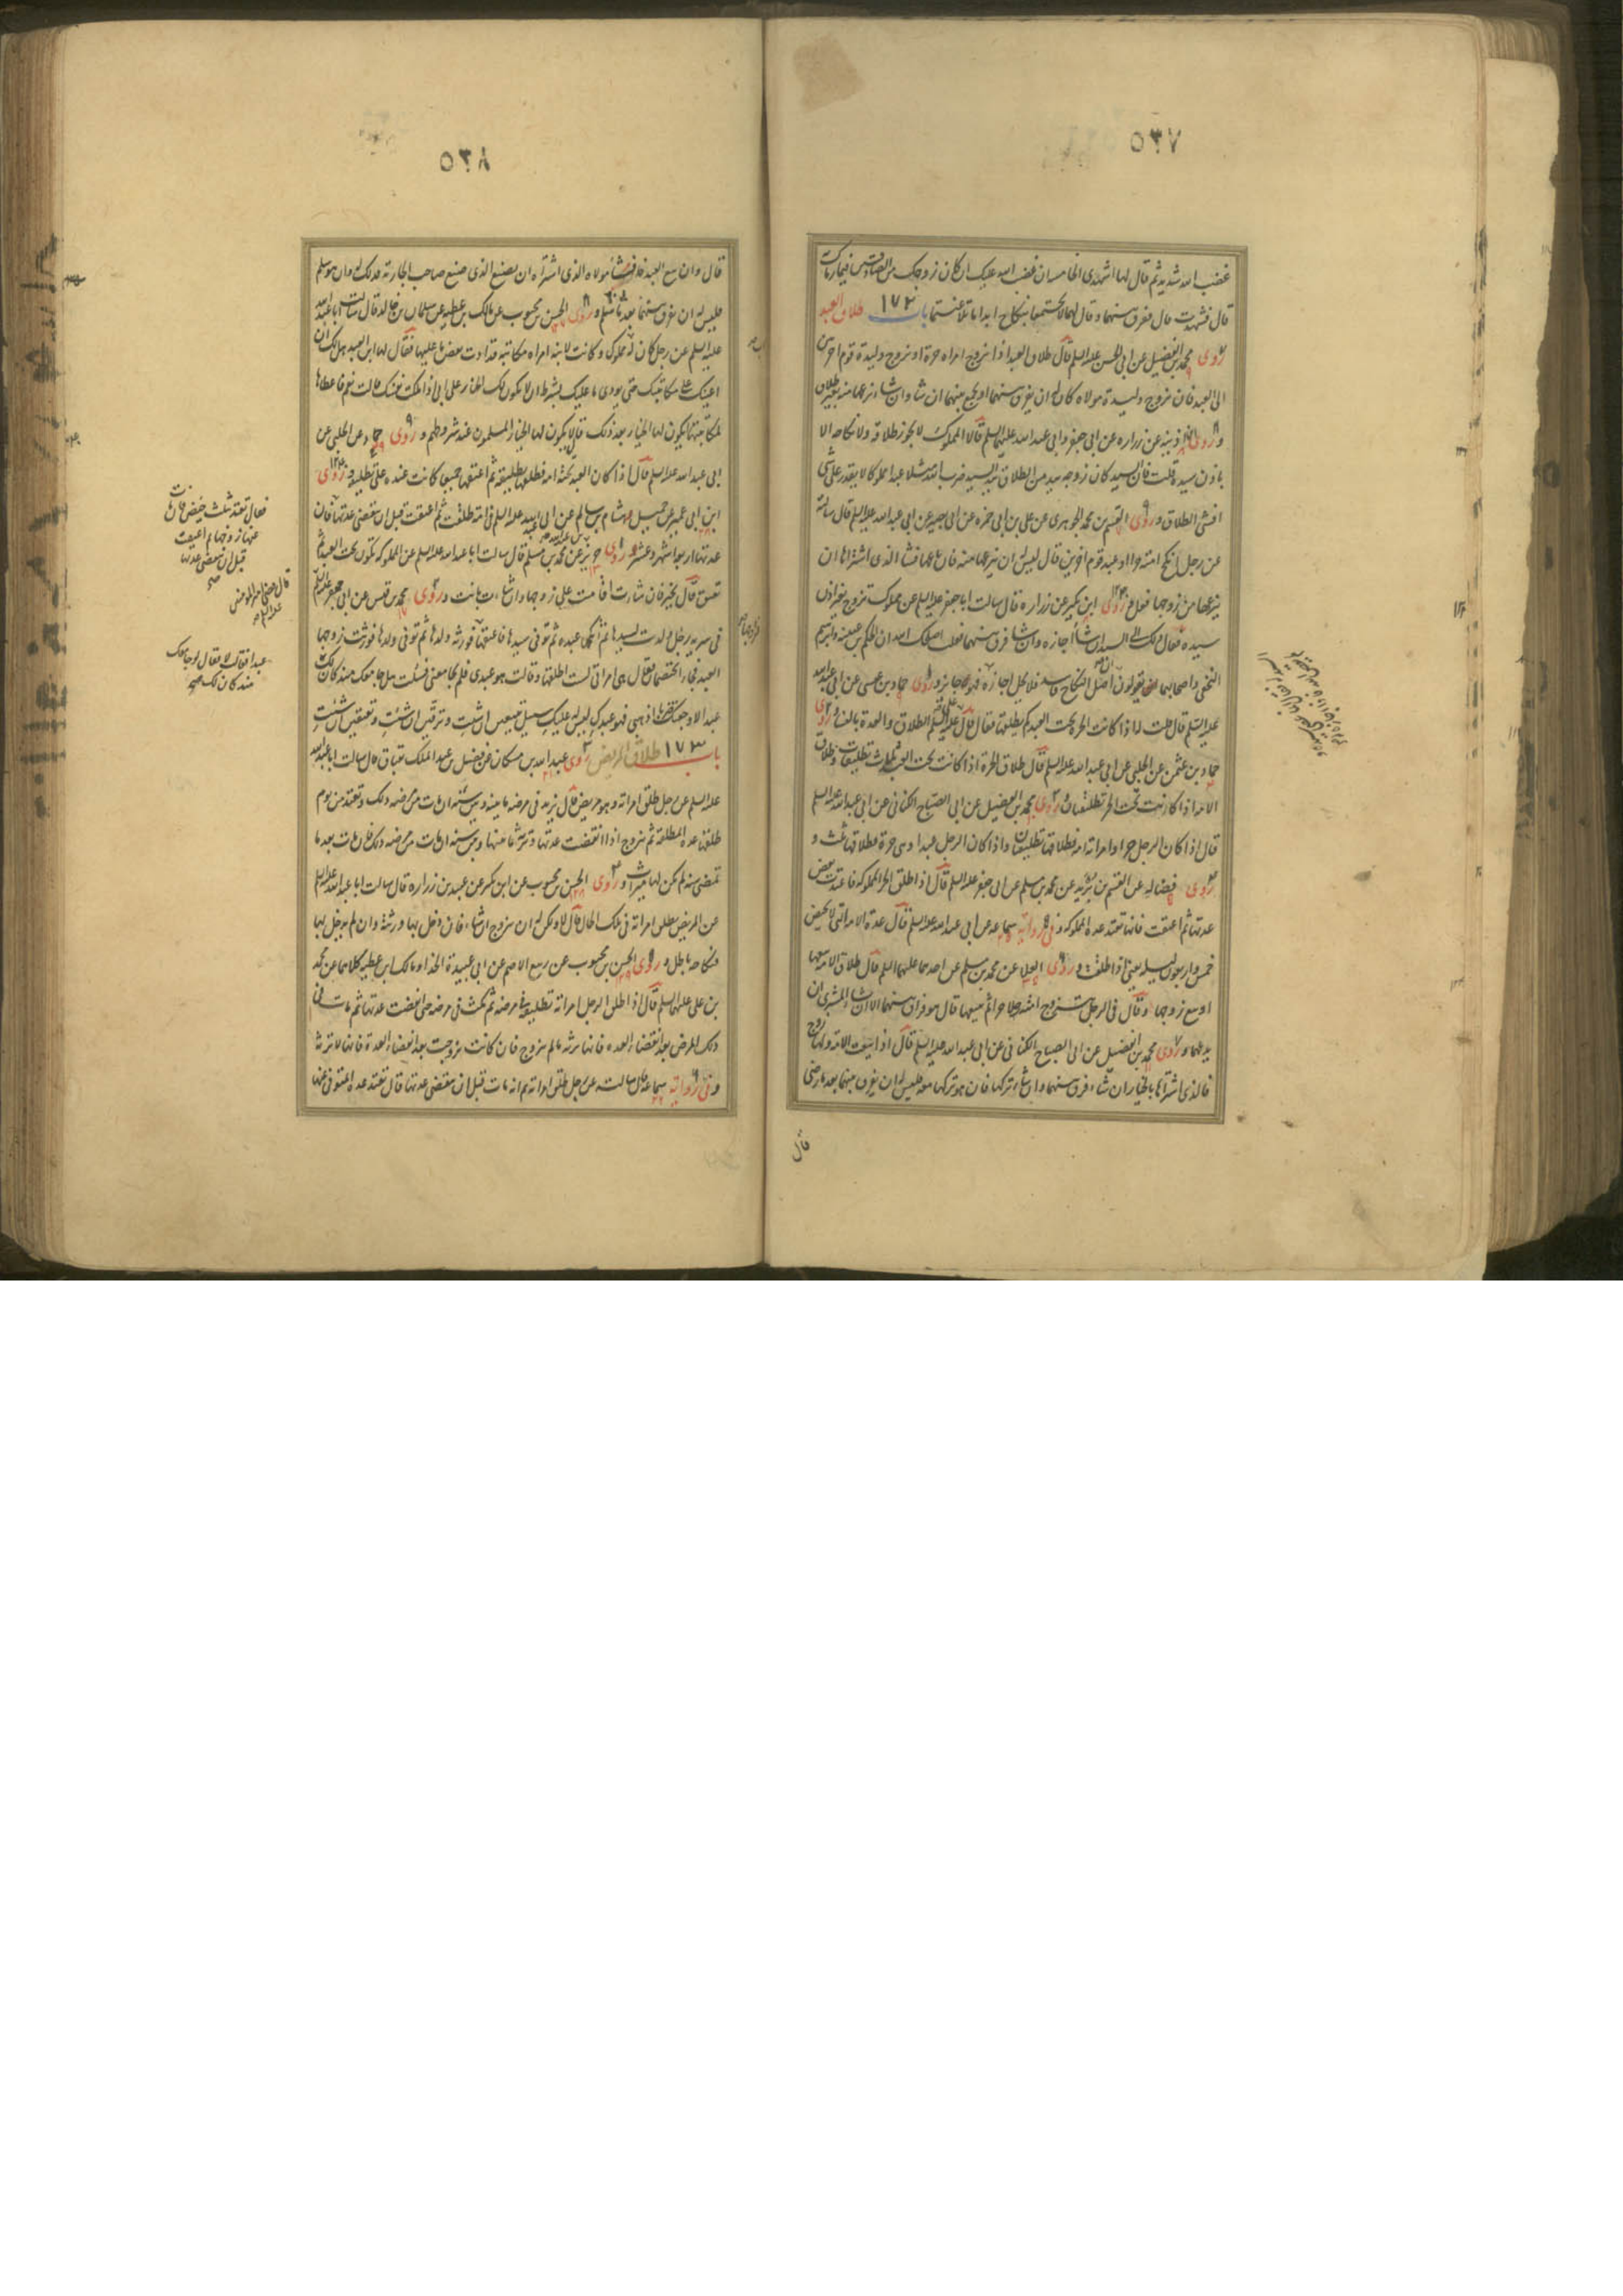 ٥٣٧
غضب الله شديد ثم قال لها اشهدى الخامسة ان غضب الله عليك ان كان زوجك من الصادقين فيما رماك
قال فشهدت قال ففرق بينهما وقال لهما لا تجتمعا بنكاح ابدا بعد ما تلاعنتما باب ١٧٢ طلاق العبد
روى محمد بن الفضيل عن ابى الحسن عليه السلم قال طلاق العبد اذا تزوج امراة حرة او تزوج وليدة قوم آخرين
الى العبد فان تزوج وليدة مولاه كان له ان يفرق بينهما او يجمع بينهما ان شاء وان شاء نزعها منه بغير طلاق
وروى ابن اذينة عن زرارة عن ابى جعفر وابى عبد الله عليهما السلم قالا المملوك لا يجوز طلاقه ولا نكاحه الا
باذن سيده قلت فان السيد كان زوجه بيد من الطلاق قال بيد السيد ضرب الله مثلا عبدا مملوكا لا يقدر على شى
افشى الطلاق وروى القسم بن محمد الجوهرى عن على بن ابى حمزة عن ابى بصير عن ابى عبد الله عليه السلم قال سالته
عن رجل انكح امته حرا او عبد قوم آخرين قال ليس له ان ينزعها منه فان باعها فشاء الذى اشتراها ان
ينزعها من زوجها فعل وروى ابن بكير عن زرارة قال سالت ابا جعفر عليه السلم عن مملوك تزوج بغير اذن
سيده فقال ذلك الى السيد ان شاء اجازه وان شاء فرق بينهما فقلت اصلحك الله ان الحكم بن عيينة وابرهيم
النخعى واصحابهما يقولون ان اصل النكاح فاسد فلا يحل اجازه فهو جايز وروى حماد بن عيسى عن ابى عبد الله
عليه السلم قال قلت له اذا كانت الحرة تحت العبد كم يطلقها فقال قال على عليه السلم الطلاق والعدة بالنساء وروى
حماد بن عثمن عن الحلبى عن ابى عبد الله عليه السلم قال طلاق الحرة اذا كانت تحت العبد ثلث تطليقات وطلاق
الامة اذا كانت تحت الحر تطليقتان وروى محمد بن الفضيل عن ابى الصباح الكنانى عن ابى عبد الله عليه السلم
قال اذا كان الرجل حرا وامراته امة فطلاقها تطليقتان واذا كان الرجل عبدا وهى حرة فطلاقها ثلث و
روى فضالة عن القسم بن بريد عن محمد بن مسلم عن ابى جعفر عليه السلم قال اذا طلق الحر المملوكة فاعتدت بعض
عدتها ثم اعتقت فانها تعتد عدة المملوكة وفى رواية سماعة عن ابى عبد الله عليه السلم قال عدة الامة التى لا تحيض
خمس واربعون ليلة يعنى اذا طلقت وروى العلا عن محمد بن مسلم عن احدهما عليهما السلم قال طلاق الامة بيعها
او بيع زوجها وقال فى الرجل يزوج امته رجلا حرا ثم يبيعها قال هو فراق بينهما الا ان شاء المشترى ان
يدعهما وروى محمد بن الفضيل عن ابى الصباح الكنانى عن ابى عبد الله عليه السلم قال اذا بيعت الامة ولها زوج
فالذى اشتراها بالخيار ان شاء فرق بينهما وان شاء تركها فان هو تركها معه فليس له ان يفرق بينهما بعد ما رضى
قال
٥٣٨
قال وان بيع العبد فان شاء مولاه الذى اشتراه ان يصنع الذى صنع صاحب الجارية فذلك له وان هو سلم
فليس له ان يفرق بينهما بعد ما سلم وروى الحسن بن محبوب عن مالك بن عطية عن سليمان بن خالد قال سالت ابا عبد الله
عليه السلم عن رجل كان له مملوك وكانت لابنه امراة مكاتبة قد ادت بعض ما عليها فقال لها ابن العبد هل لك ان
اعينك على مكاتبتك حتى تؤدى ما عليك بشرط ان لا يكون لك الخيار على ابى اذا ملكت نفسك قالت نعم فاعطاها
لمكاتبتها ايكون لها الخيار بعد ذلك قال لا يكون لها الخيار المسلمون عند شروطهم وروى حماد عن الحلبى عن
ابى عبد الله عليه السلم قال اذا كان العبد تحته امة فطلقها تطليقة ثم اعتقها جميعا كانت عنده على تطليقة وروى
ابن ابى عمير عن جميل وهشام بن سالم عن ابى عبد الله عليه السلم فى امة طلقت ثم اعتقت قبل ان تنقضى عدتها فان
عدتها اربعة اشهر وعشر وروى حريز عن محمد بن مسلم قال سالت ابا عبد الله عليه السلم عن المملوكة تكون تحت العبد ثم
تعتق قال تخير فان شاءت اقامت على زوجها وان شاءت بانت وروى محمد بن قيس عن ابى جعفر عليه السلم
فى سرية رجل ولدت لسيدها ثم انكحها عبده ثم توفى سيدها فاعتقها فورثه ولدها ثم توفى ولدها فورثت زوجها
العبد فجاءا يختصمان يقول هى امراتى لست اطلقها وقالت هو عبدى فلم يجامعنى فسئلت هل جامعك منذ كان لك
عبدا اذهبى فهو عبدك ليس له عليك سبيل تبيعين ان شئت وترقين ان شئت وتعتقين ان شئت
باب ١٧٣ طلاق المريض روى عبد الله بن مسكان عن فضيل بن عبد الملك البقباق قال سالت ابا عبد الله
عليه السلم عن رجل طلق امراته وهو مريض قال ترثه فى مرضه ما بينه وبين سنة ان مات من مرضه ذلك وتعتد من يوم
طلقها عدة المطلقة ثم تتزوج اذا انقضت عدتها وترثه ما بينها وبين سنة ان مات من مرضه ذلك فان مات بعد ما
تمضى سنة لم يكن لها ميراث وروى الحسن بن محبوب عن ابن بكير عن عبيد بن زرارة قال سالت ابا عبد الله عليه السلم
عن المريض يطلق امراته فى تلك الحال قال لا ولكن له ان يتزوج ان شاء فان دخل بها ورثته وان لم يدخل بها
فنكاحه باطل وروى الحسن بن محبوب عن ربيع الاصم عن ابى عبيدة الحذاء ومالك ابن عطية كلاهما عن محمد
بن على عليهما السلم قال اذا طلق الرجل امراته تطليقة فى مرضه ثم مكث فى مرضه حتى انقضت عدتها ثم مات فى
ذلك المرض بعد انقضاء العدة فانها ترثه ما لم تتزوج فان كانت تزوجت بعد انقضاء العدة فانها لا ترثه
وفى رواية سماعة قال سالته عن رجل طلق امراته ثم انه مات قبل ان تنقضى عدتها قال تعتد عدة المتوفى عنها
فقال تعتد بثلث حيض فان مات
عنها زوجها ثم اعتقت
قبل ان تنقضى عدتها
صح
قال قضى امير المؤمنين
عليه السلم
عبدا فقالت لا فقال لو جامعك
منذ كان لك صح